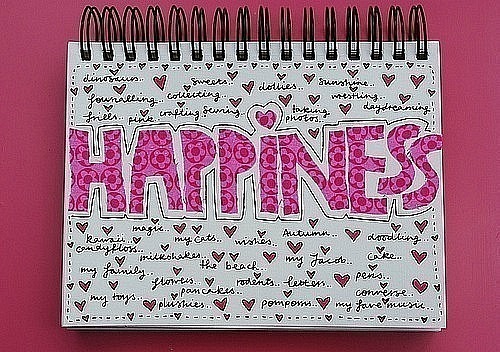 dinosaurs.. sweets dollies.. sunshine..
journalling.. collecting wrestling..
frills.. pink crafting sewing taking photos.. daydreaming
HAPPINESS
magic.. my cats.. wishes Autumn.. doodling..
kawaii.. candyfloss..
milkshakes.. the beach.. my Jacob.. cake..
my family.. flowers.. pancakes.. rodents.. letters.. pens..
my toys.. plushies.. pompoms.. converse my fave music..